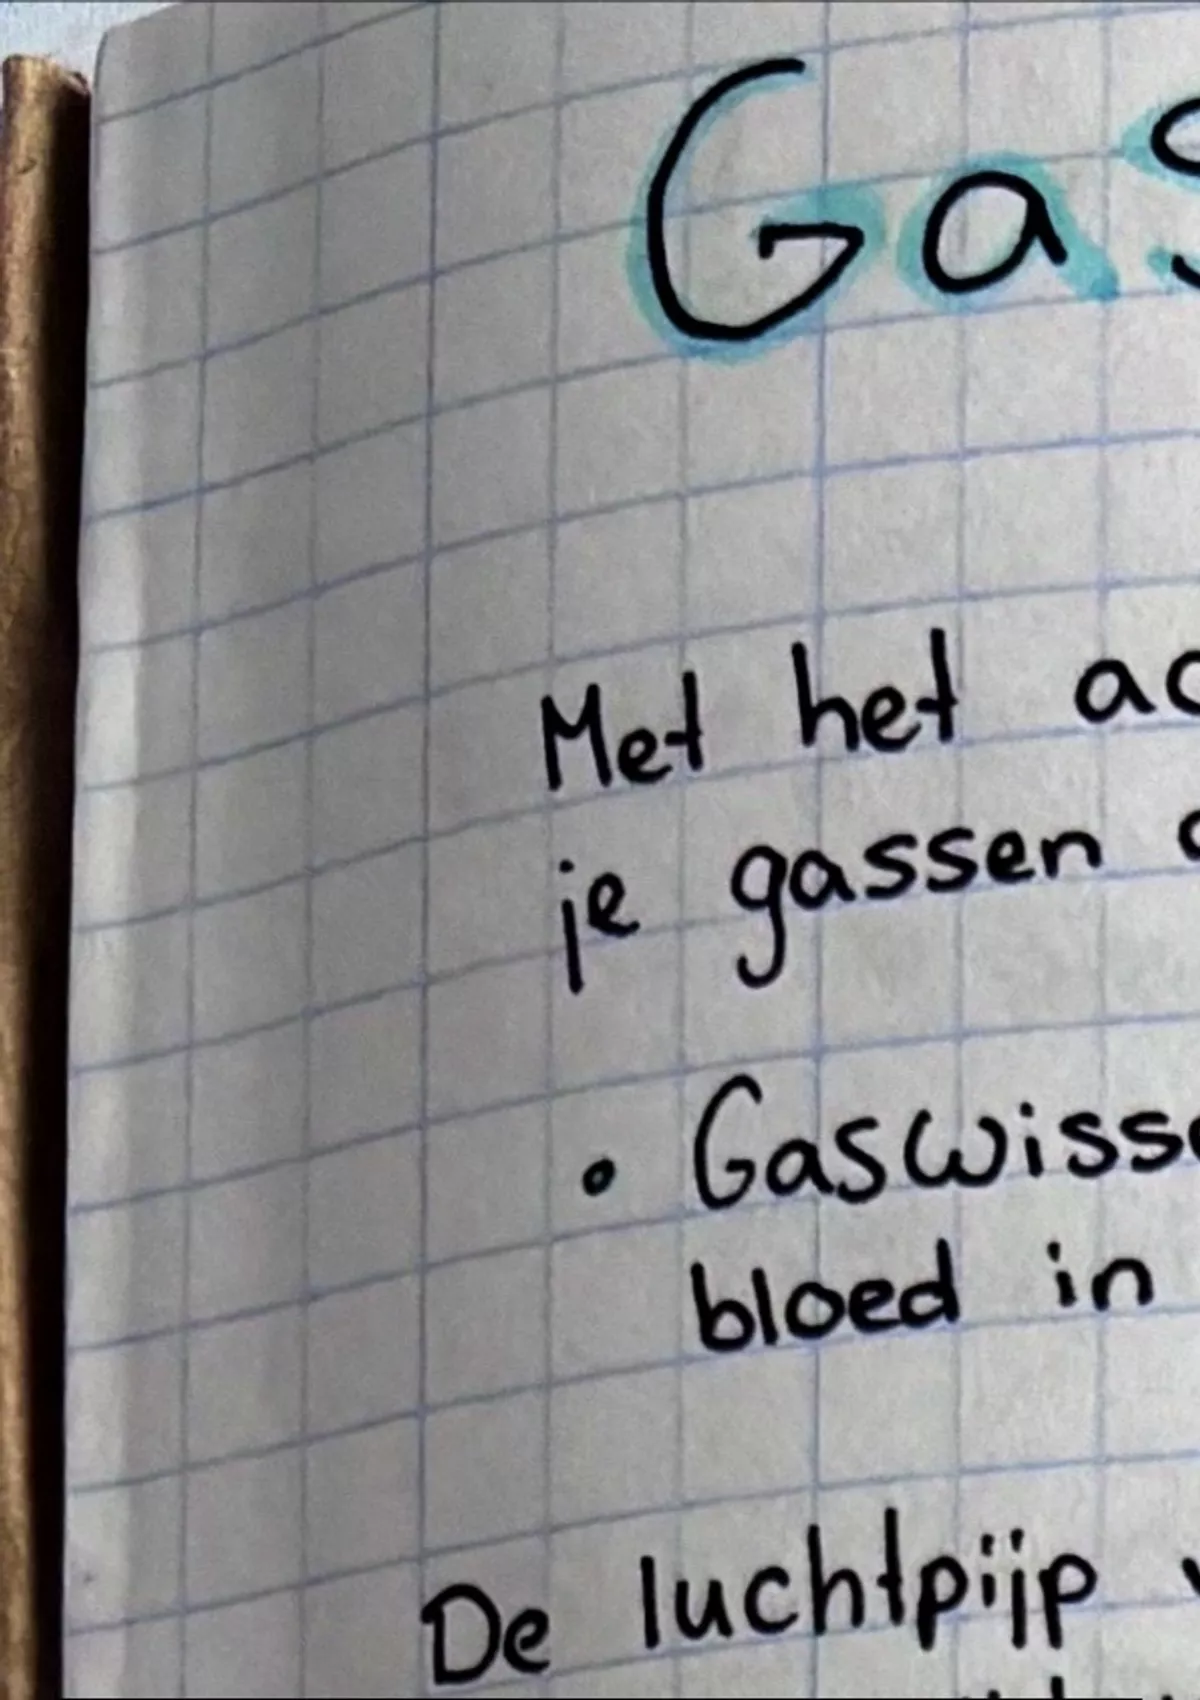 Gas
Met het
je gassen
• Gaswisse
bloed in
De luchtpijp